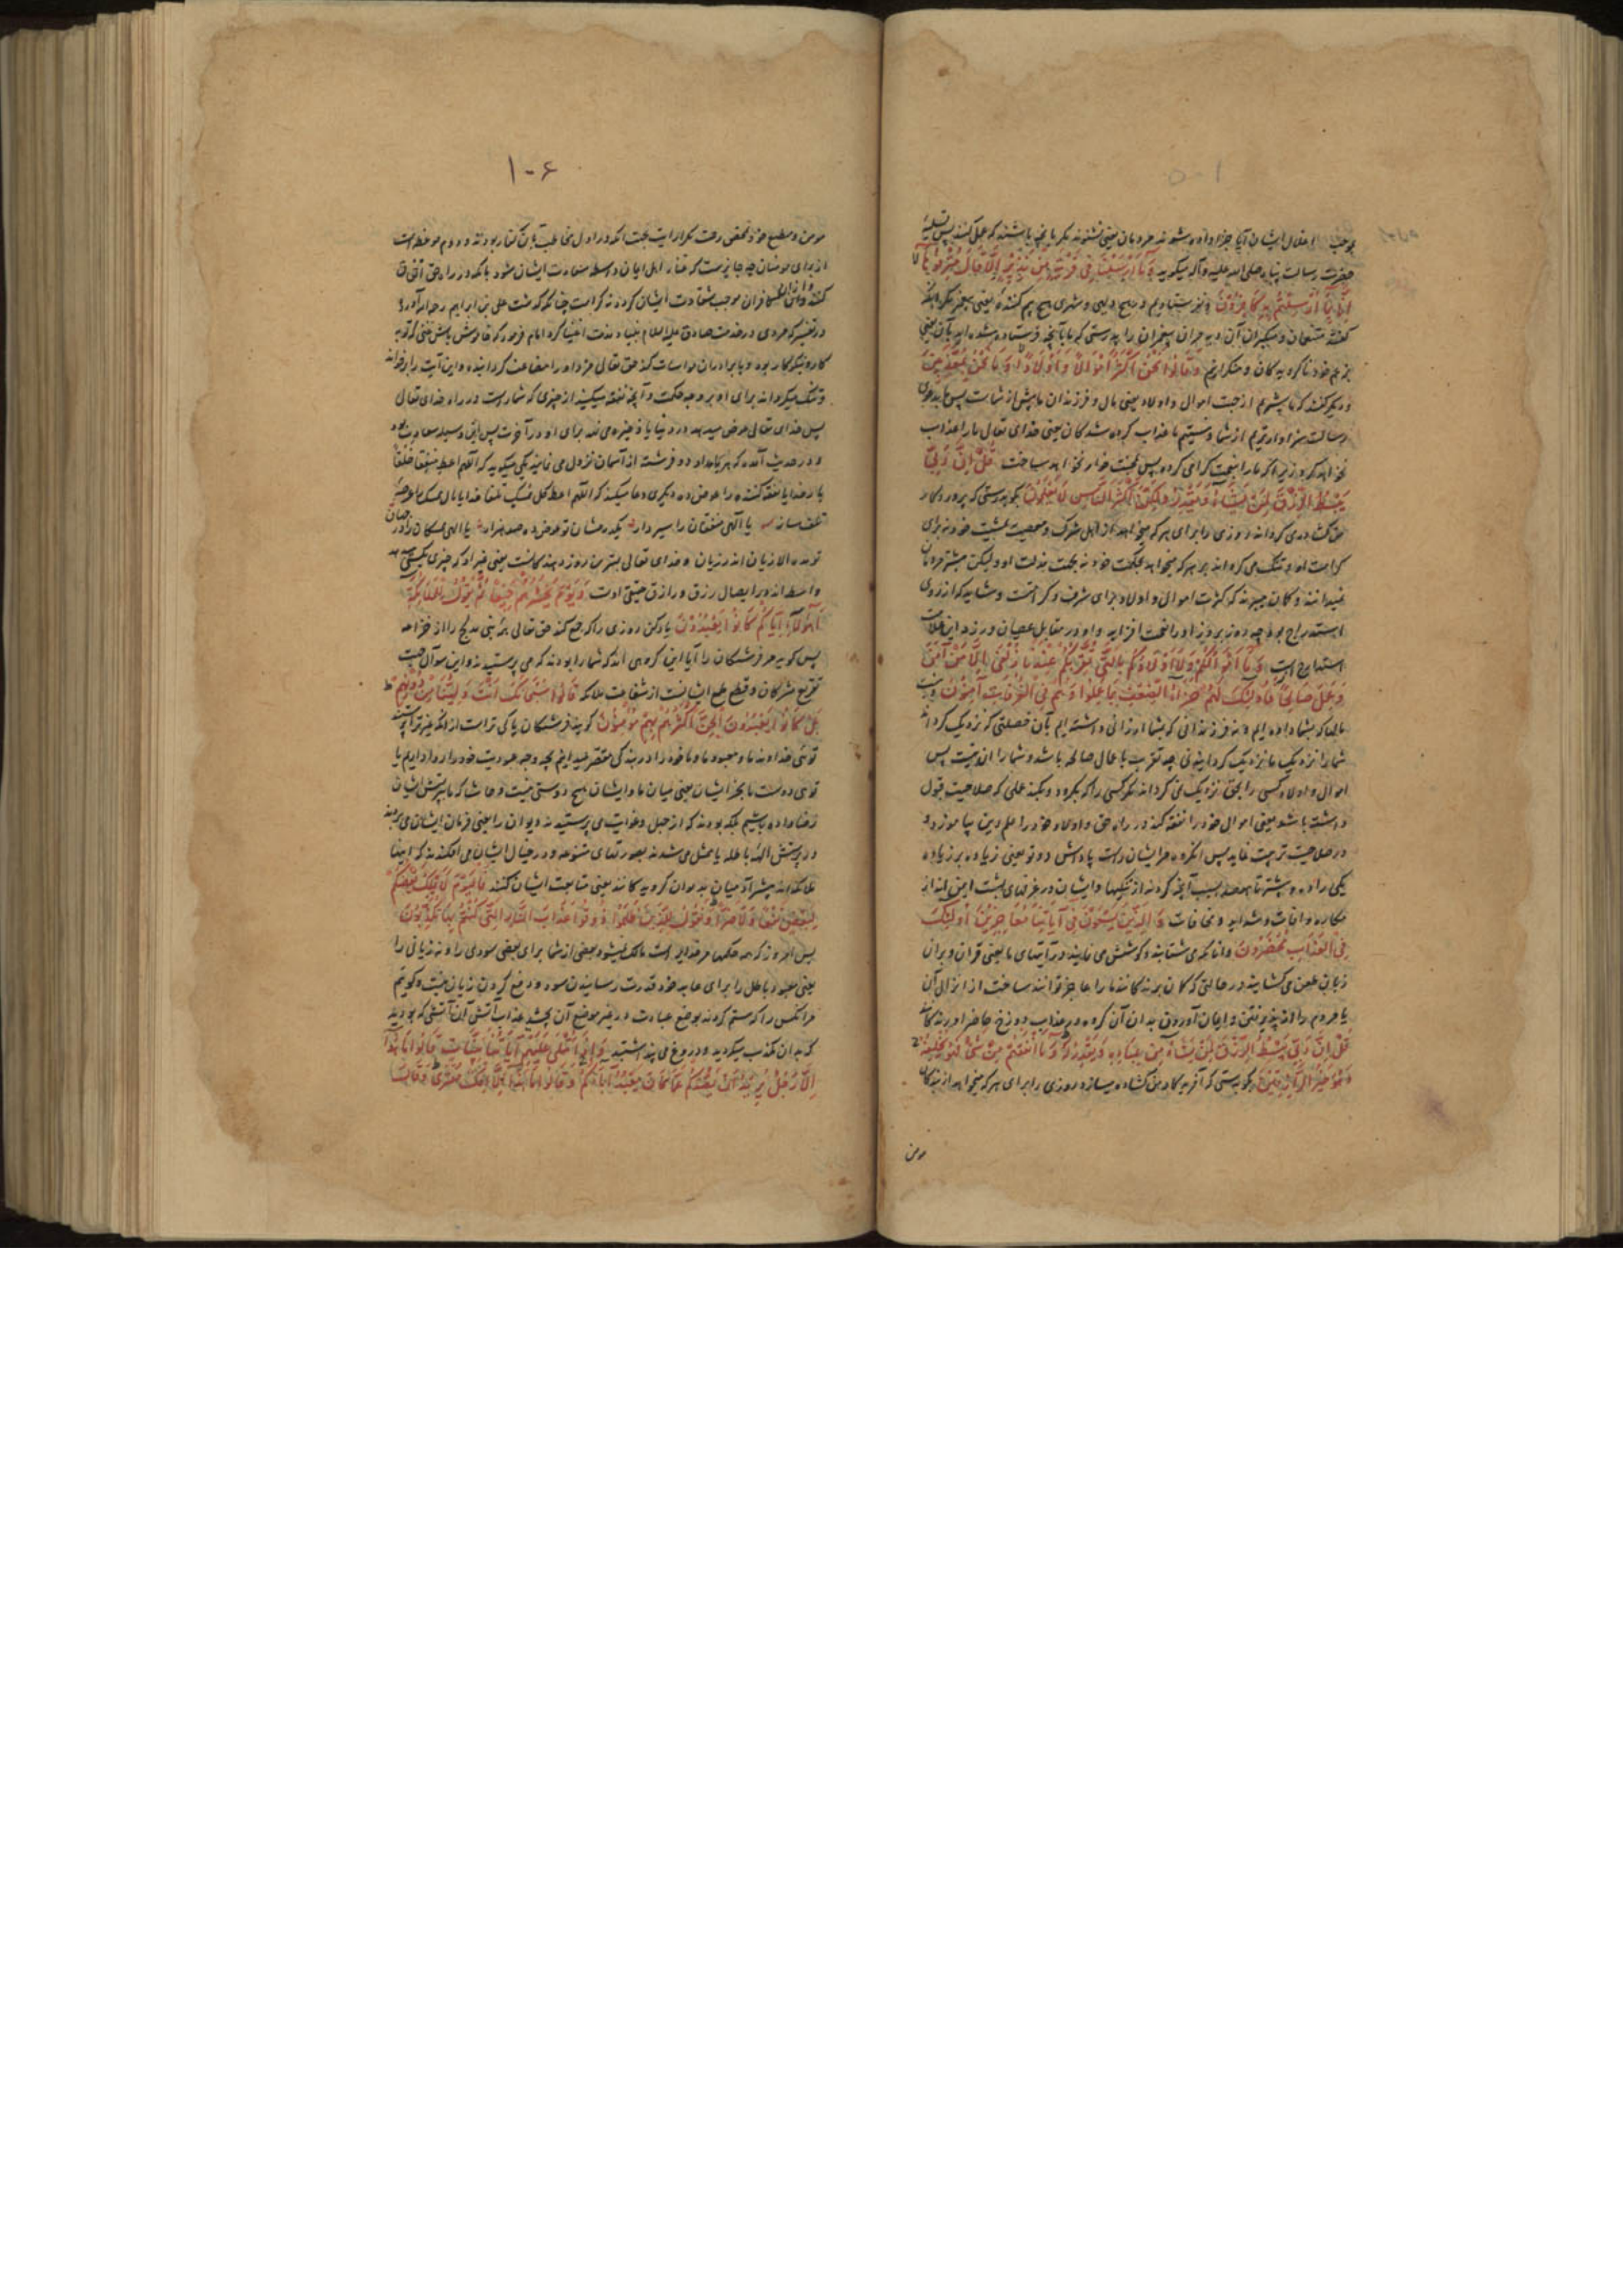 ۱۰۵
موجب اغلال ایشان آیا جزا داده شوند مردمان یعنی نشوند مگر بانچه باشند که عمل کنند پس تسلیهٔ
حضرت رسالت پناه صلی الله علیه وآله میگوید وَمَا أَرْسَلْنَا فِی قَرْیَةٍ مِنْ نَذِیرٍ إِلَّا قَالَ مُتْرَفُوهَا
إِنَّا بِمَا أُرْسِلْتُمْ بِهِ کَافِرُونَ و نفرستادیم در هیچ دیهی و شهری هیچ بیم کننده یعنی پیغمبر مگر آنکه
گفتند متنعمان و متکبران آن دیه مران پیغمبران را بدرستی که ما بآنچه فرستاده شده اید بآن یعنی
بزعم خود ناگرویدگان و منکرانیم وَقَالُوا نَحْنُ أَکْثَرُ أَمْوَالًا وَأَوْلَادًا وَمَا نَحْنُ بِمُعَذَّبِینَ
و دیگر گفتند که ما بیشتریم از جهت اموال و اولاد یعنی مال و فرزندان ما بیش از شماست پس ما بدعوی
رسالت سزاوارتریم از شما و نیستیم ما عذاب کرده شدگان یعنی خدای تعالی ما را عذاب
نخواهد کرد زیرا که ما را بنعمت گرامی کرده پس بمحنت خوار نخواهد ساخت قُلْ إِنَّ رَبِّی
یَبْسُطُ الرِّزْقَ لِمَنْ یَشَاءُ وَیَقْدِرُ وَلَکِنَّ أَکْثَرَ النَّاسِ لَا یَعْلَمُونَ بگو بدرستی که پروردگار
من گشاده می گرداند روزی را برای هر که میخواهد از اهل شرک و معصیت بمشیت خود نه برای
کرامت او و تنگ می گرداند بر هر که میخواهد بحکمت خود نه بجهت مذلت او ولیکن بیشتر مردمان
نمیدانند و گمان میبرند که کثرت اموال و اولاد برای شرف و کرامتست و شاید که از روی
استدراج بود چه روز بروز او را نعمت افزاید و او در مقابل عصیان ورزد این علامت
استدراج است وَمَا أَمْوَالُکُمْ وَلَا أَوْلَادُکُمْ بِالَّتِی تُقَرِّبُکُمْ عِنْدَنَا زُلْفَى إِلَّا مَنْ آمَنَ
وَعَمِلَ صَالِحًا فَأُولَئِکَ لَهُمْ جَزَاءُ الضِّعْفِ بِمَا عَمِلُوا وَهُمْ فِی الْغُرُفَاتِ آمِنُونَ و نیست
مالها که بشما داده ایم و نه فرزندانی که بشما ارزانی داشته ایم بآن خصلتی که نزدیک گرداند
شما را نزدیک ما نزدیک گردانیدنی چه تقرب باعمال صالحه باشد و شما را آن نیست پس
اموال و اولاد کسی را بحق نزدیک نمی گرداند مگر کسی را که بگرود و بکند عملی که صلاحیت قبول
داشته باشد یعنی اموال خود را نفقه کند در راه حق و اولاد خود را علم دین بیاموزد و
در صلاحیت تربیت نماید پس آنگروه مر ایشان راست پاداش دو تو یعنی زیاده بر زیاده
یکی را ده و بیشتر تا هفتصد بسبب آنچه کردند از نیکیها و ایشان در غرفهای بهشت ایمن اند از
مکاره و آفات و شداید و مخافات وَالَّذِینَ یَسْعَوْنَ فِی آیَاتِنَا مُعَاجِزِینَ أُولَئِکَ
فِی الْعَذَابِ مُحْضَرُونَ و آنانکه می شتابند و کوشش می نمایند در آیتهای ما یعنی قرآن و بران
زبان طعن می گشایند در حالتی که گمان برندگانند ما را عاجز توانند ساخت از انزال آن
یا مردم را از پذیرفتن و ایمان آوردن بدان آن گروه در عذاب دوزخ حاضر آورندگانند
قُلْ إِنَّ رَبِّی یَبْسُطُ الرِّزْقَ لِمَنْ یَشَاءُ مِنْ عِبَادِهِ وَیَقْدِرُ لَهُ وَمَا أَنْفَقْتُمْ مِنْ شَیْءٍ فَهُوَ یُخْلِفُهُ
وَهُوَ خَیْرُ الرَّازِقِینَ بگو بدرستی که آفریدگار من گشاده میسازد روزی را برای هر که میخواهد از بندگان
مومن
۱۰۶
مومن و مطیع خود بمحض رحمت تکرار آیت بجهت آنکه در اول مخاطب بآن کفار بودند و دوم موعظه است
از برای مومنان چه جایز است که غنا اهل ایمان واسطه سعادت ایشان شود بانکه در راه حق انفاق
کنند و غنای کافران موجب شقاوت ایشان گردد نه کرامت چنانکه گذشت علی بن ابراهیم رحمه الله آورده
در تفسیر که مردی در خدمت صادق علیه السلام بنیاد مذمت اغنیا کرد امام فرمود که خاموش باش غنی که توبه
کار و نیکوکار بود و با برادران مواسات کند حق تعالی مزد او را مضاعف گرداند و این آیت را برخواند
و تنگ میگرداند برای او بر وجه حکمت و آنچه نفقه میکنید از چیزی که شما راست در راه خدای تعالی
پس خدای تعالی عوض میدهد در دنیا یا ذخیره می نهد برای او در آخرت پس انفاق وسیله سعادت بود
و در حدیث آمده که هر بامداد دو فرشته از آسمان نزول می نمایند یکی میگوید که اللهم اعط منفقا خلفا
بار خدایا نفقه کننده را عوض ده دیگری دعا میکند که اللهم اعط کل ممسک تلفا خدایا مال ممسک را
تلف ساز یا الهی منفقان را سیر دار یکدرمشان تو عوض ده صد هزار یا الهی ممسکان را در جهان
تو مده الا زیان اندر زیان و خدای تعالی بهترین روزی دهندگانست یعنی غیر او که چیزی بکسی دهد
واسطه اند در ایصال رزق و رازق حقیقی اوست وَیَوْمَ یَحْشُرُهُمْ جَمِیعًا ثُمَّ یَقُولُ لِلْمَلَائِکَةِ
أَهَؤُلَاءِ إِیَّاکُمْ کَانُوا یَعْبُدُونَ یاد کن روزی را که جمع کند حق تعالی بنی ملیح را از خزاعه
پس گوید مر فرشتگان را آیا این گروهی اند که شما را بودند که می پرستیدند و این سوال جهت
تقریع مشرکان و قطع طمع ایشانست از شفاعت ملائکه قَالُوا سُبْحَانَکَ أَنْتَ وَلِیُّنَا مِنْ دُونِهِمْ
بَلْ کَانُوا یَعْبُدُونَ الْجِنَّ أَکْثَرُهُمْ بِهِمْ مُؤْمِنُونَ گویند فرشتگان پاکی تراست از آنکه غیر ترا پرستند
توئی خداوند ما و معبود ما و ما خود را در بندگی مقصر میدانیم بچه وجه معبودیت خود را روا داریم یا
توئی دوست ما بجز ایشان یعنی میان ما و ایشان هیچ دوستی نیست و حاشا که ما بپرستش ایشان
رضا داده باشیم بلکه بودند که از جهل و غوایت می پرستیدند دیوان را یعنی فرمان ایشان می بردند
در پرستش الهه باطله یا متمثل می شدند بصورتهای متنوعه و در خیال ایشان می افکندند که اینها
ملائکه اند بیشتر آدمیان بدیوان گرویدگانند یعنی متابعت ایشان کنند فَالْیَوْمَ لَا یَمْلِکُ بَعْضُکُمْ
لِبَعْضٍ نَفْعًا وَلَا ضَرًّا وَنَقُولُ لِلَّذِینَ ظَلَمُوا ذُوقُوا عَذَابَ النَّارِ الَّتِی کُنْتُمْ بِهَا تُکَذِّبُونَ
پس امروز که همه حکمها مر خدایراست مالک نیشود بعضی از شما برای بعضی سودی را و نه زیانی را
یعنی معبود باطل را برای عابد خود قدرت رسانیدن سود و دفع کردن زیان نیست و گوئیم
مرانکس را که ستم کردند بوضع عبادت در غیر موضع آن بچشید عذاب آتشی آن آتشی که بودید
که بدان تکذیب میکردید و دروغ می پنداشتید وَإِذَا تُتْلَى عَلَیْهِمْ آیَاتُنَا بَیِّنَاتٍ قَالُوا مَا هَذَا
إِلَّا رَجُلٌ یُرِیدُ أَنْ یَصُدَّکُمْ عَمَّا کَانَ یَعْبُدُ آبَاؤُکُمْ وَقَالُوا مَا هَذَا إِلَّا إِفْکٌ مُفْتَرًى وَقَالَ